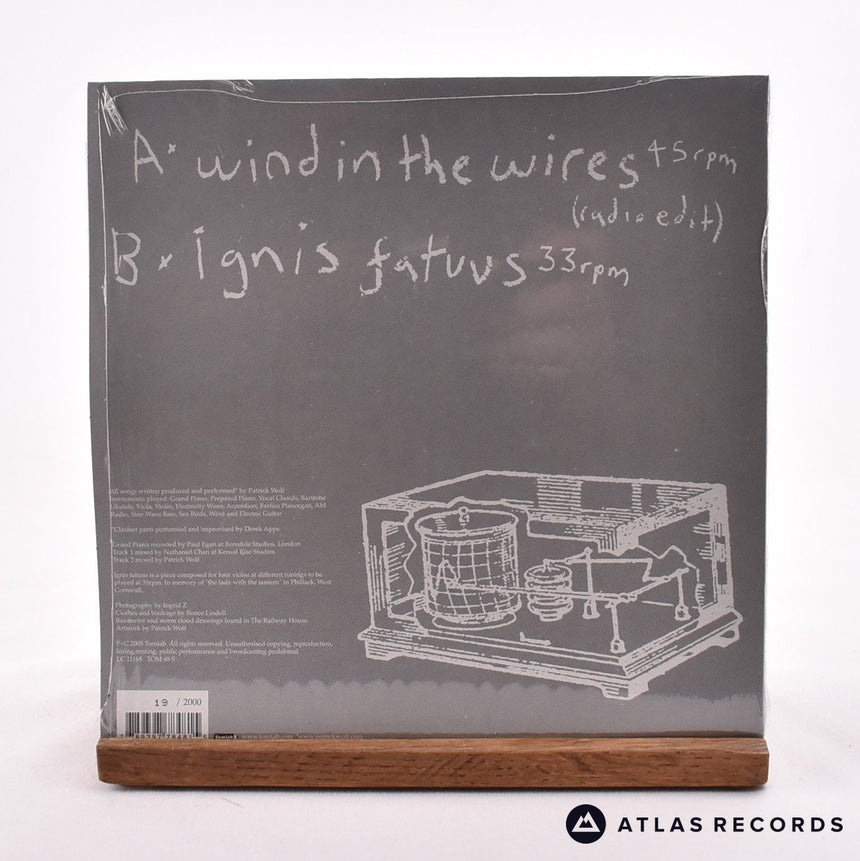 A* wind in the wires 45rpm
(radio edit)
B* ignis fatuus 33rpm
All songs written produced and performed* by Patrick Wolf
Instruments played: Grand Piano, Prepared Piano, Vocal Chords, Baritone
Ukulele, Viola, Violin, Electricity Wires, Accordion, Farfisa Pianorgan, AM
Radio, Sine Wave Base, Sea Birds, Wind and Electric Guitar
*Clarinet parts performed and improvised by Derek Apps
Grand Piano recorded by Paul Egan at Bonafide Studios, London
Track 1 mixed by Nathaniel Chan at Kensal Rise Studios
Track 2 mixed by Patrick Wolf
Ignis fatuus is a piece composed for four violas at different tunings to be
played at 33rpm. In memory of "the lady with the lantern" in Phillack, West
Cornwall.
Photography by Ingrid Z
Clothes and birdcage by Renee Lindell
Barometer and storm cloud drawings found in The Railway House
Artwork by Patrick Wolf
P+C 2005 Tomlab. All rights reserved. Unauthorised copying, reproduction,
hiring, renting, public performance and broadcasting prohibited
LC 11168 TOM 48-5
19 / 2000
Tomlab www.tomlab.com www.patrickwolf.com
ATLAS RECORDS